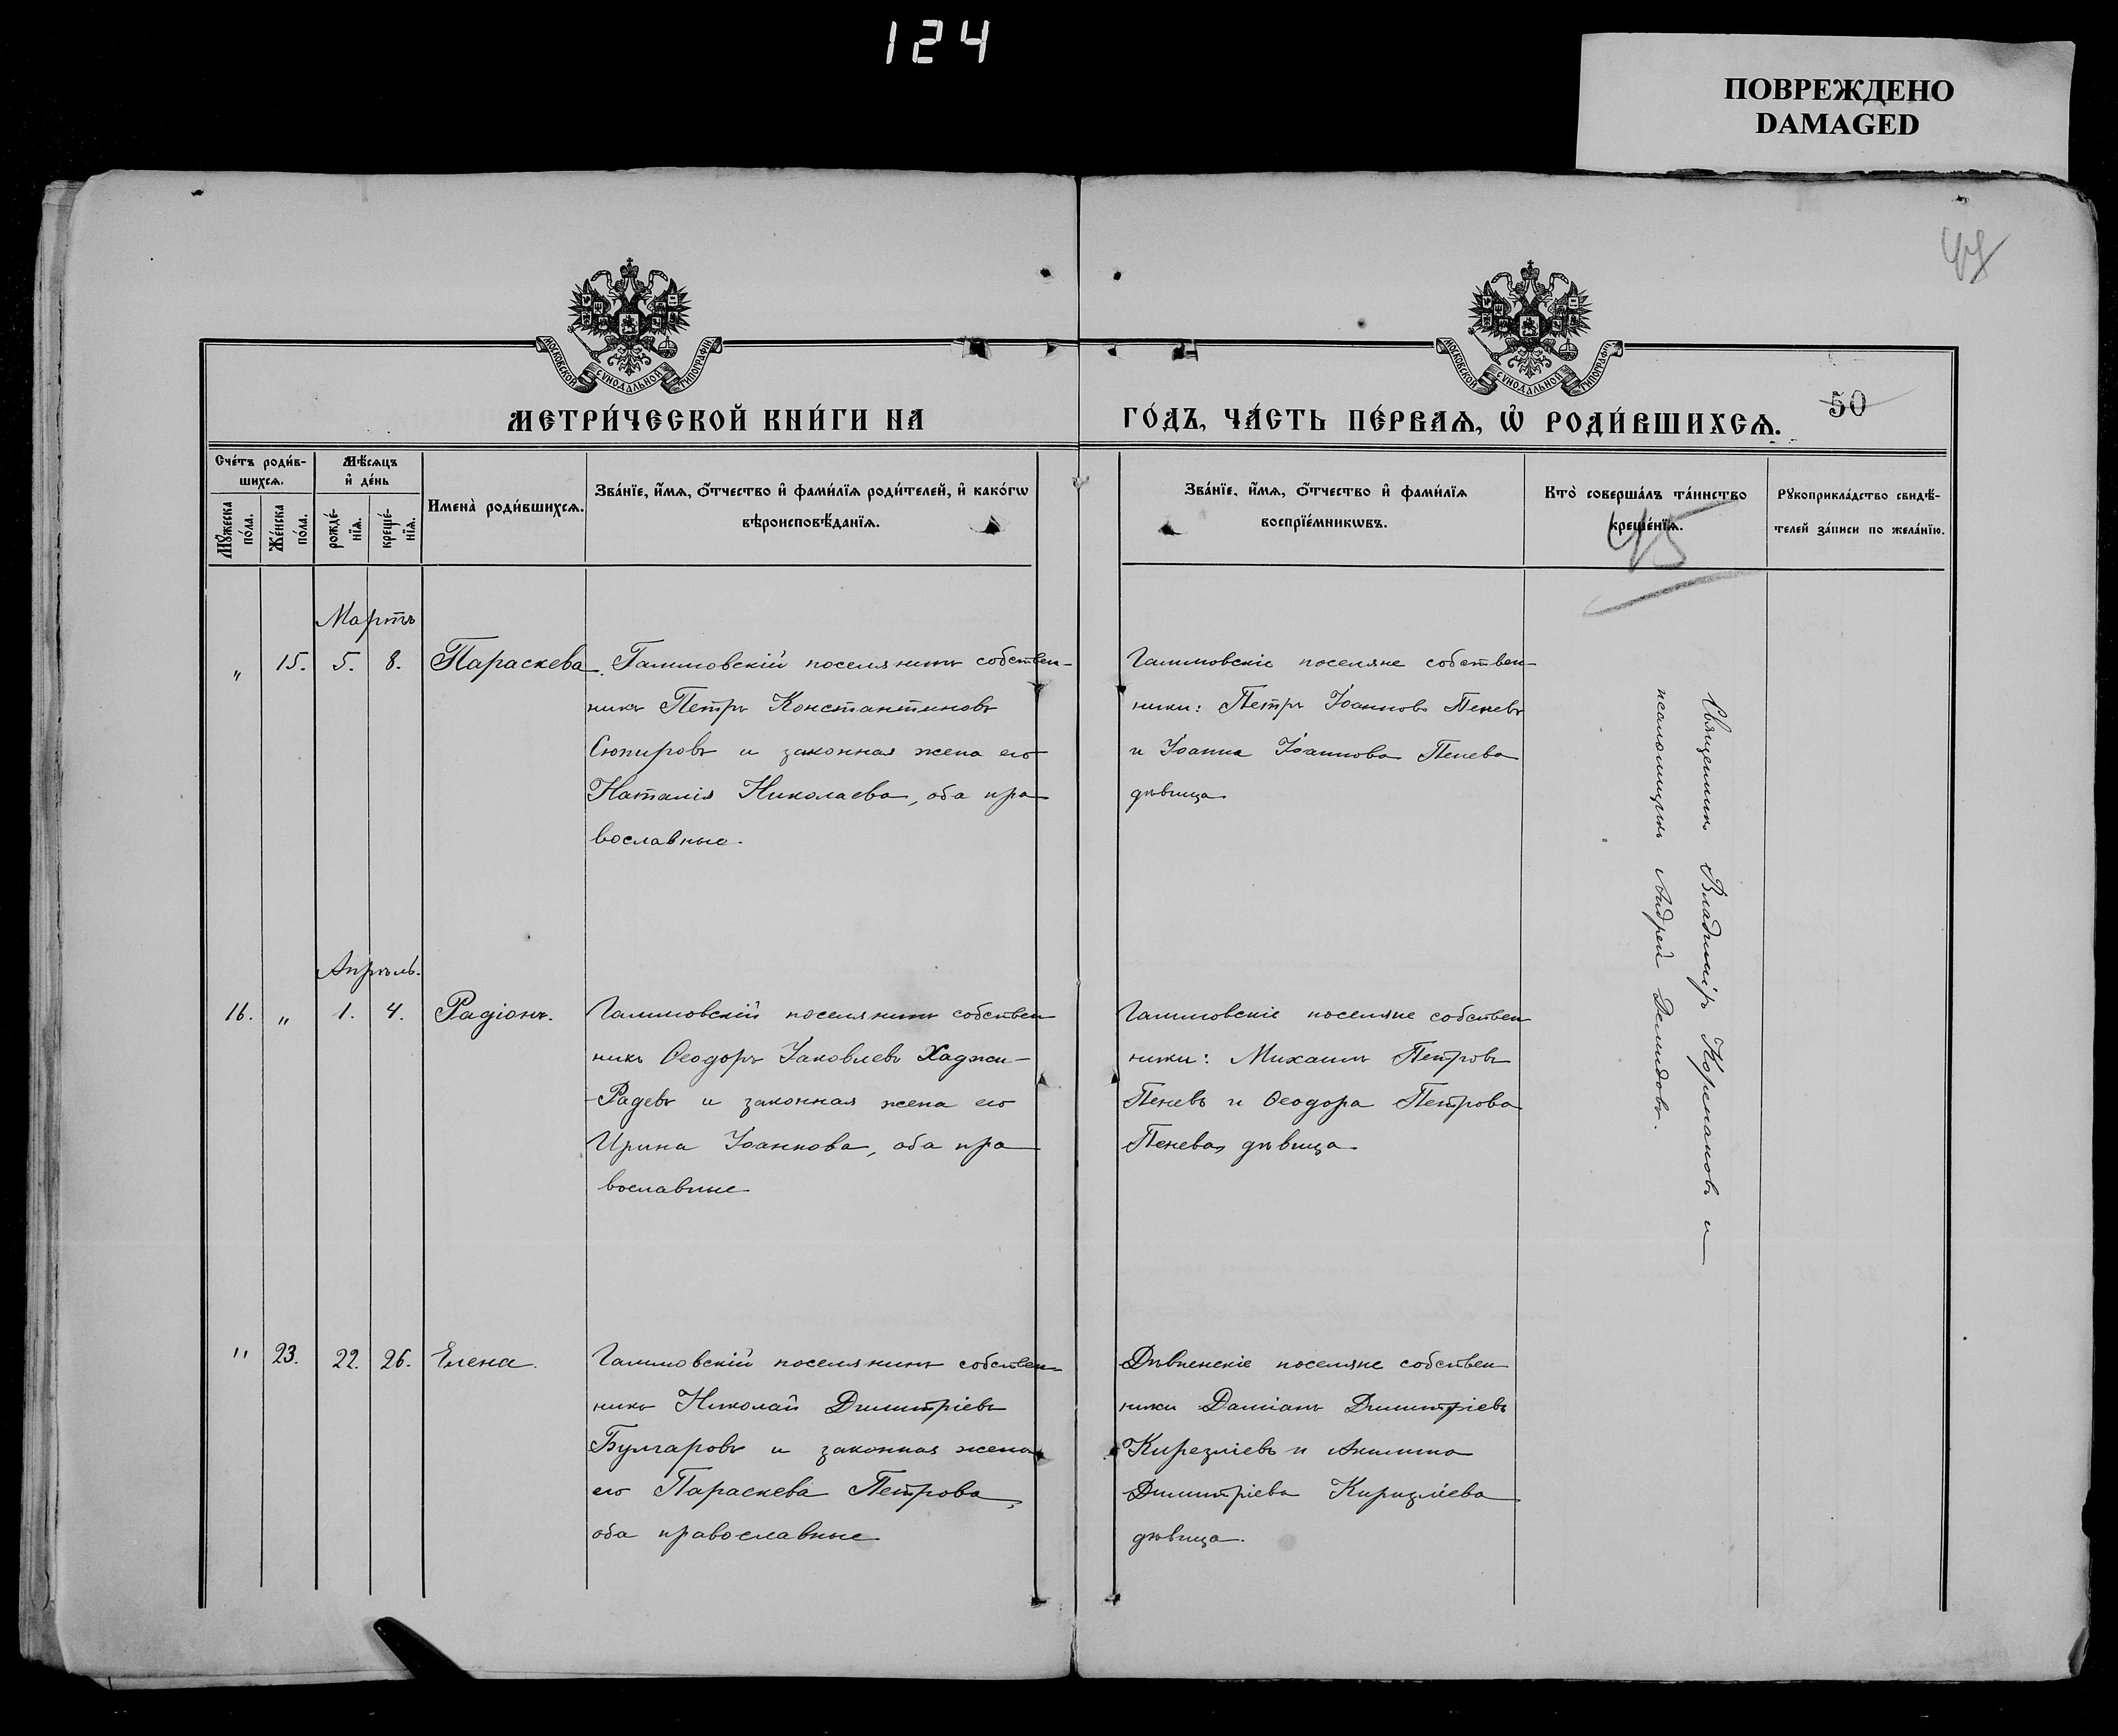 124
ПОВРЕЖДЕНО
DAMAGED
МОСКОВСКОЙ СѴНОДАЛЬНОЙ ТИПОГРАФІИ
МОСКОВСКОЙ СѴНОДАЛЬНОЙ ТИПОГРАФІИ
50
МЕТРИ́ЧЕСКОЙ КНИ́ГИ НА
ГО́ДЪ, ЧА́СТЬ ПЕ́РВАѦ, Ѡ҆ РОДИ́ВШИХСѦ.
Сче́тъ роди́в-
шихсѧ.
Мѣ́сѧцъ
и҆ де́нь
Мꙋ́жеска
по́ла.
Же́нска
по́ла.
рожде́-
нїѧ.
креще́-
нїѧ.
Имена̀ роди́вшихсѧ.
Зва́нїе, и҆́мѧ, ѻ҆́тчество и҆ фами́лїѧ роди́телей, и҆ како́гѡ
вѣроисповѣ́данїѧ.
Зва́нїе, и҆́мѧ, ѻ҆́тчество и҆ фами́лїѧ
воспрїе́мникѡвъ.
Кто̀ соверша́лъ та́инство
креще́нїѧ.
45
Рꙋкоприкла́дство свидѣ́-
телей за́писи по жела́нїю.
Мартъ
" 15. 5. 8. Параскева.
Галиловскій поселянинъ собствен-
никъ Петръ Константиновъ
Сюпировъ и законная жена его
Наталія Николаева, оба пра
вославные.
Галиловскіе поселяне собствен-
ники: Петръ Іоанновъ Пеневъ
и Іоанна Іоаннова Пенева
дѣвица
Священникъ Владиміръ Кормановъ и
псаломщикъ Андрей Демидовъ.
Апрѣль.
16. " 1. 4. Радіонъ.
Галиловскій поселянинъ собствен
никъ Ѳеодоръ Іаковлевъ Хаджи-
-Радевъ и законная жена его
Ирина Іоаннова, оба пра
вославные
Галиловскіе поселяне собствен
ники: Михаилъ Петровъ
Пеневъ и Ѳеодора Петрова
Пенева, дѣвица
" 23. 22. 26. Елена.
Галиловскій поселянинъ собствен
никъ Николай Димитріевъ
Булгаровъ и законная жена
его Параскева Петрова,
оба православные
Дѣвненскіе поселяне собствен
ники Даміанъ Димитріевъ
Кирезліевъ и Акилина
Димитріева Киризлиева
дѣвица.